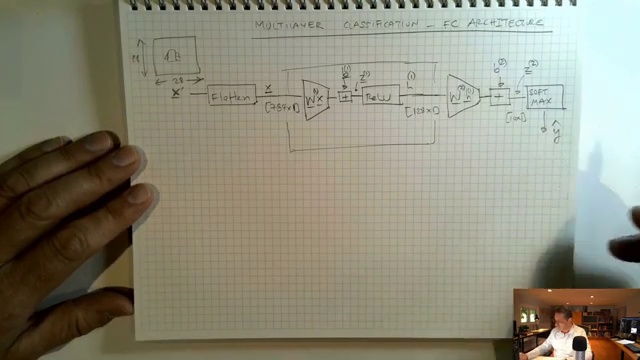 MULTILAYER CLASSIFICATION - FC ARCHITECTURE
28
28
x'
Flatten
x
[784x1]
W⁽¹⁾x
b⁽¹⁾
+
z⁽¹⁾
ReLU
h⁽¹⁾
[128x1]
W⁽²⁾h⁽¹⁾
b⁽²⁾
+
z⁽²⁾
[10x1]
SOFT
MAX
ŷ